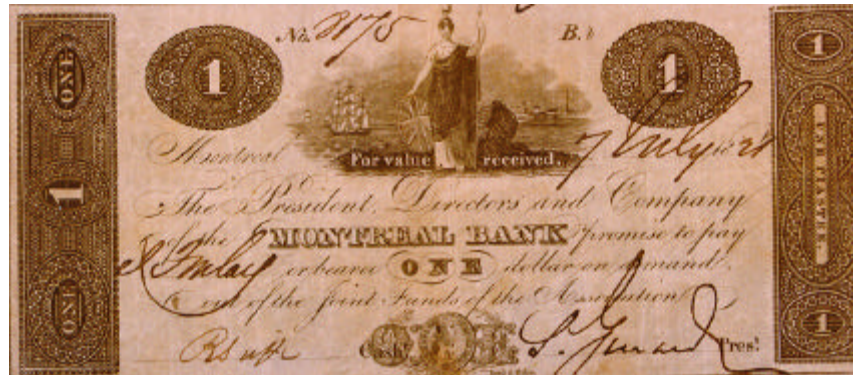 ONE 1 ONE
1
No. 3175
B.
1
1
Montreal For value received. 7 July 18
The President, Directors and Company
of the MONTREAL BANK promise to pay
or bearer ONE dollar on demand,
out of the Joint Funds of the Association
Cash.r
Pres.t
UNE PIASTRE
1